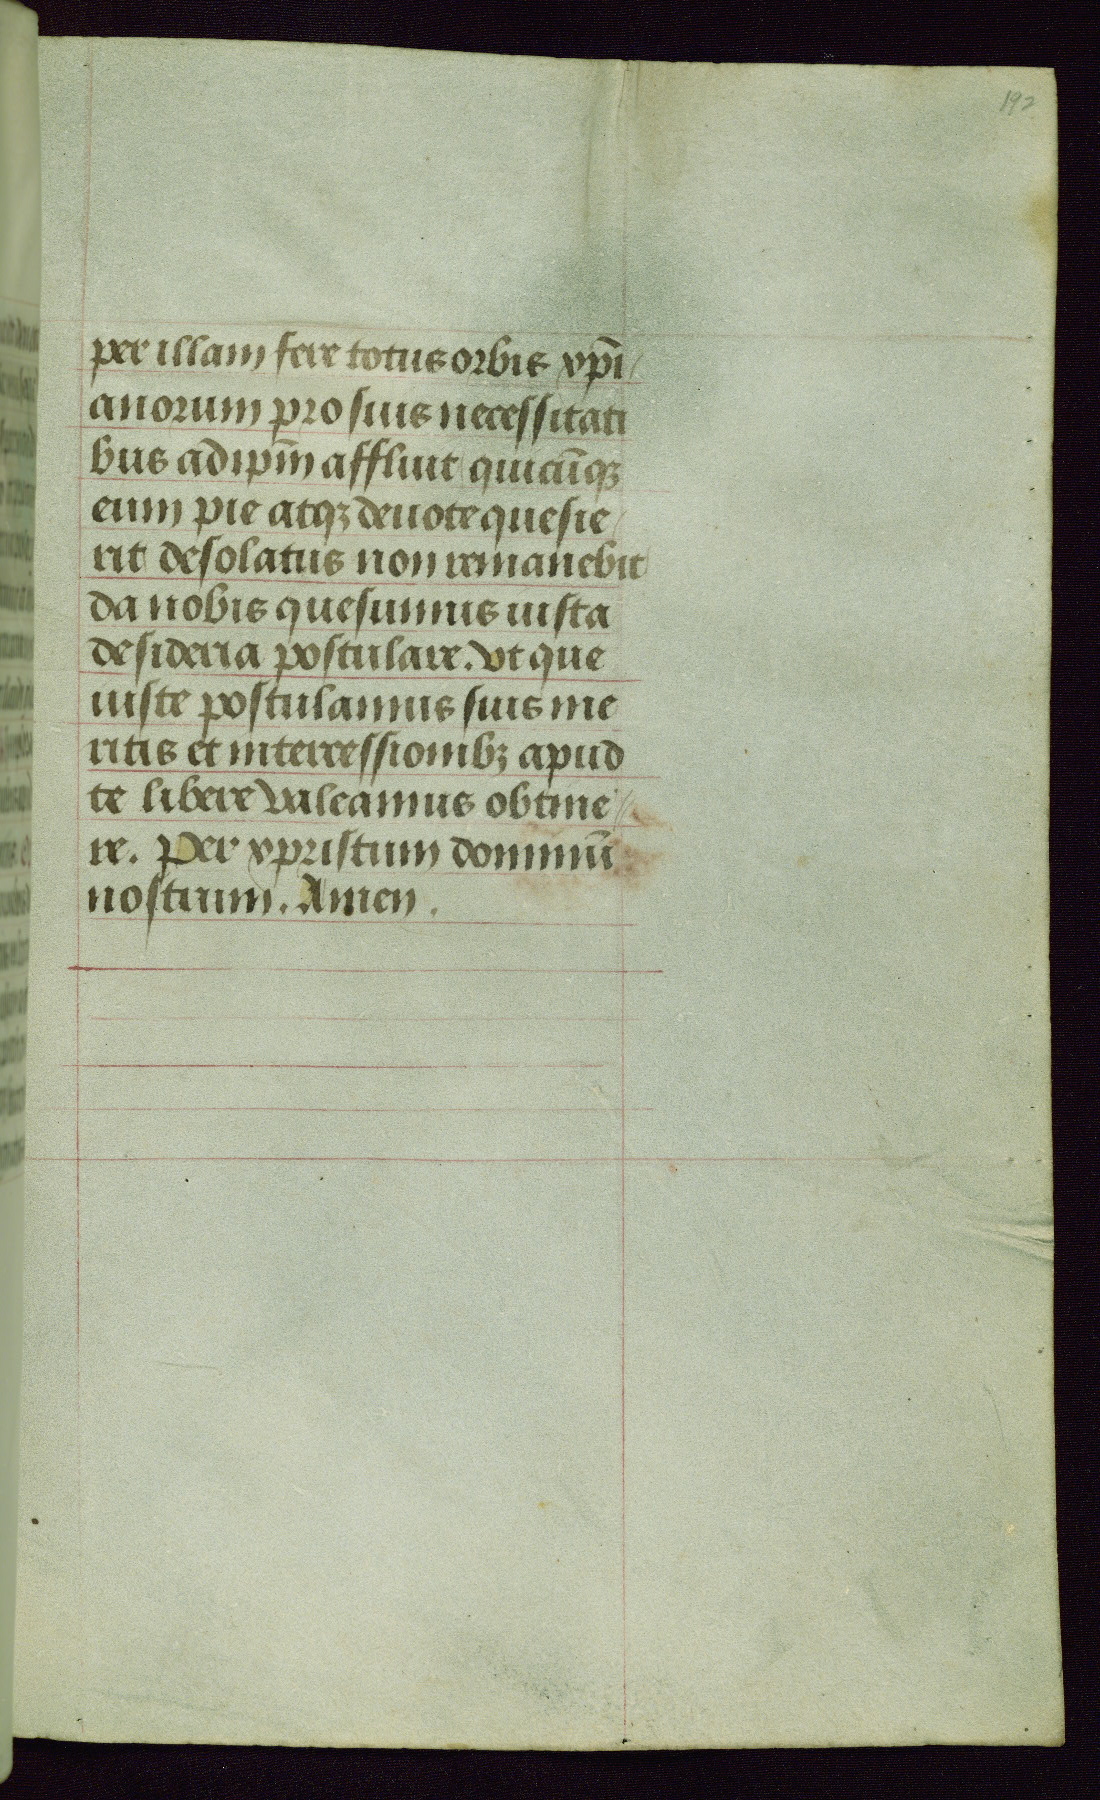 192
per illam fere totus orbis xp̄i/
anorum pro suis necessitati
bus ad ip̄m affluit quicūqꝫ
eum pie atqꝫ deuote quesie/
rit desolatus non remanebit
da nobis quesumus iusta
desideria postulare. Vt que
iuste postulamus suis me
ritis et intercessionibꝫ apud
te libere valeamus obtine//
re. Per xpristum dominū
nostrum. Amen.